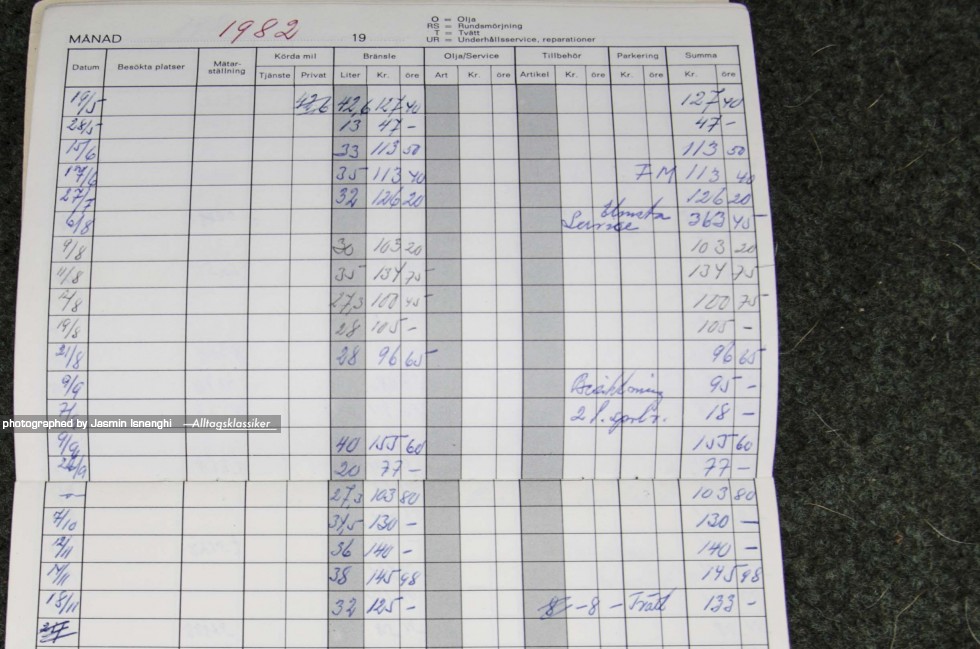 1982
O = Olja
RS = Rundsmörjning
T = Tvätt
UR = Underhållsservice, reparationer
MÅNAD 19
Datum Besökta platser Mätar-ställning Körda mil Bränsle Olja/Service Tillbehör Parkering Summa
Tjänste Privat Liter Kr. öre Art Kr. öre Artikel Kr. öre Kr. öre Kr. öre
19/5 42,6 127 40 127 40
28/5 13 47 - 47 -
15/6 33 113 50 113 50
17/6 35 113 40 7 M 113 40
27/7 32 126 20 126 20
6/8 Service 363 45
9/8 30 103 20 103 20
11/8 35 134 75 134 75
27,3 100 45 100 75
19/8 28 105 - 105 -
21/8 28 96 65 96 65
9/9 Besiktning 95 -
2 l. 18 -
photographed by Jasmin Isnenghi —Alltagsklassiker
9/9 40 155 60 155 60
20 77 - 77 -
27,3 103 80 103 80
7/10 31,5 130 - 130 -
12/11 36 140 - 140 -
38 145 98 145 98
18/11 32 125 - 8 - Tvätt 133 -